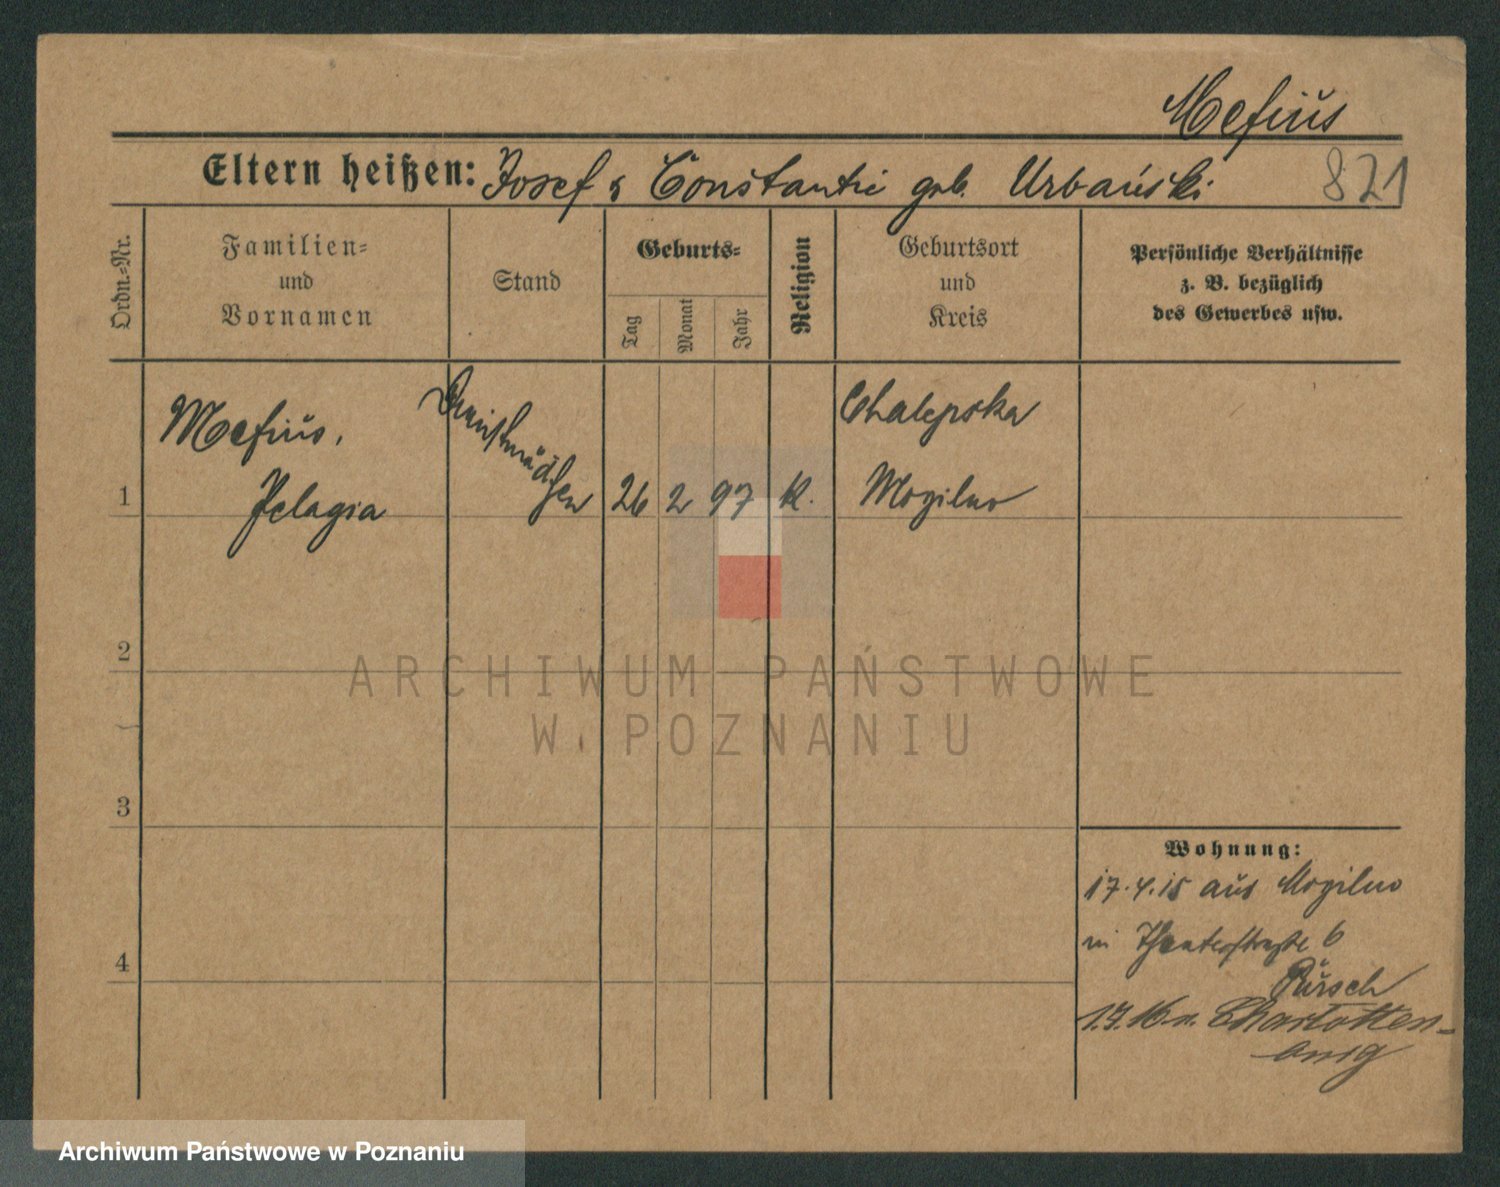 Mefiŭs
Eltern heißen: Josef & Constantie geb. Urbański
821
Ordn.-Nr.
Familien-
und
Vornamen
Stand
Geburts-
Tag
Monat
Jahr
Religion
Geburtsort
und
Kreis
Persönliche Verhältnisse
z. B. bezüglich
des Gewerbes usw.
1
Mefiŭs,
Pelagia
Dienstmädchen
26 2 97 k.
Chalepska
Mogilno
2
3
4
Wohnung:
17.4.15 aus Mogilno
in Theaterstraße 6
Pŭrsch
16 n. Charlotten-
burg
ARCHIWUM PAŃSTWOWE
W POZNANIU
Archiwum Państwowe w Poznaniu